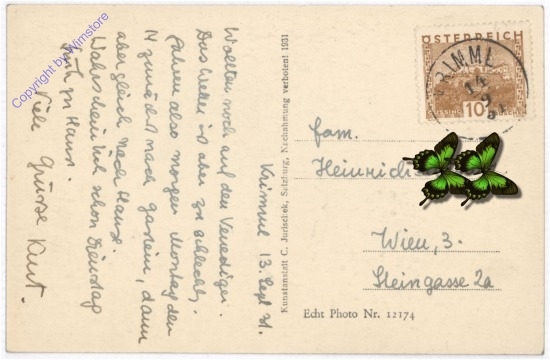 Krimml 13. Sept 31.
Wollten noch auf den Venediger.
Das Wetter ist aber zu schlecht,
fahren also morgen Montag den
14 zunächst nach Gastein, dann
aber gleich nach Hause.
Wahrscheinlich schon Dienstag
früh zu Haus.
Viele Grüsse Kurt.
Kunstanstalt C. Jurischek, Salzburg, Nachahmung verboten! 1931
ÖSTERREICH
GÜSSING
10
KRIMML
Fam.
Heinrich
Wien, 3.
Steingasse 2a
Echt Photo Nr. 12174
Copyright by Wimstore